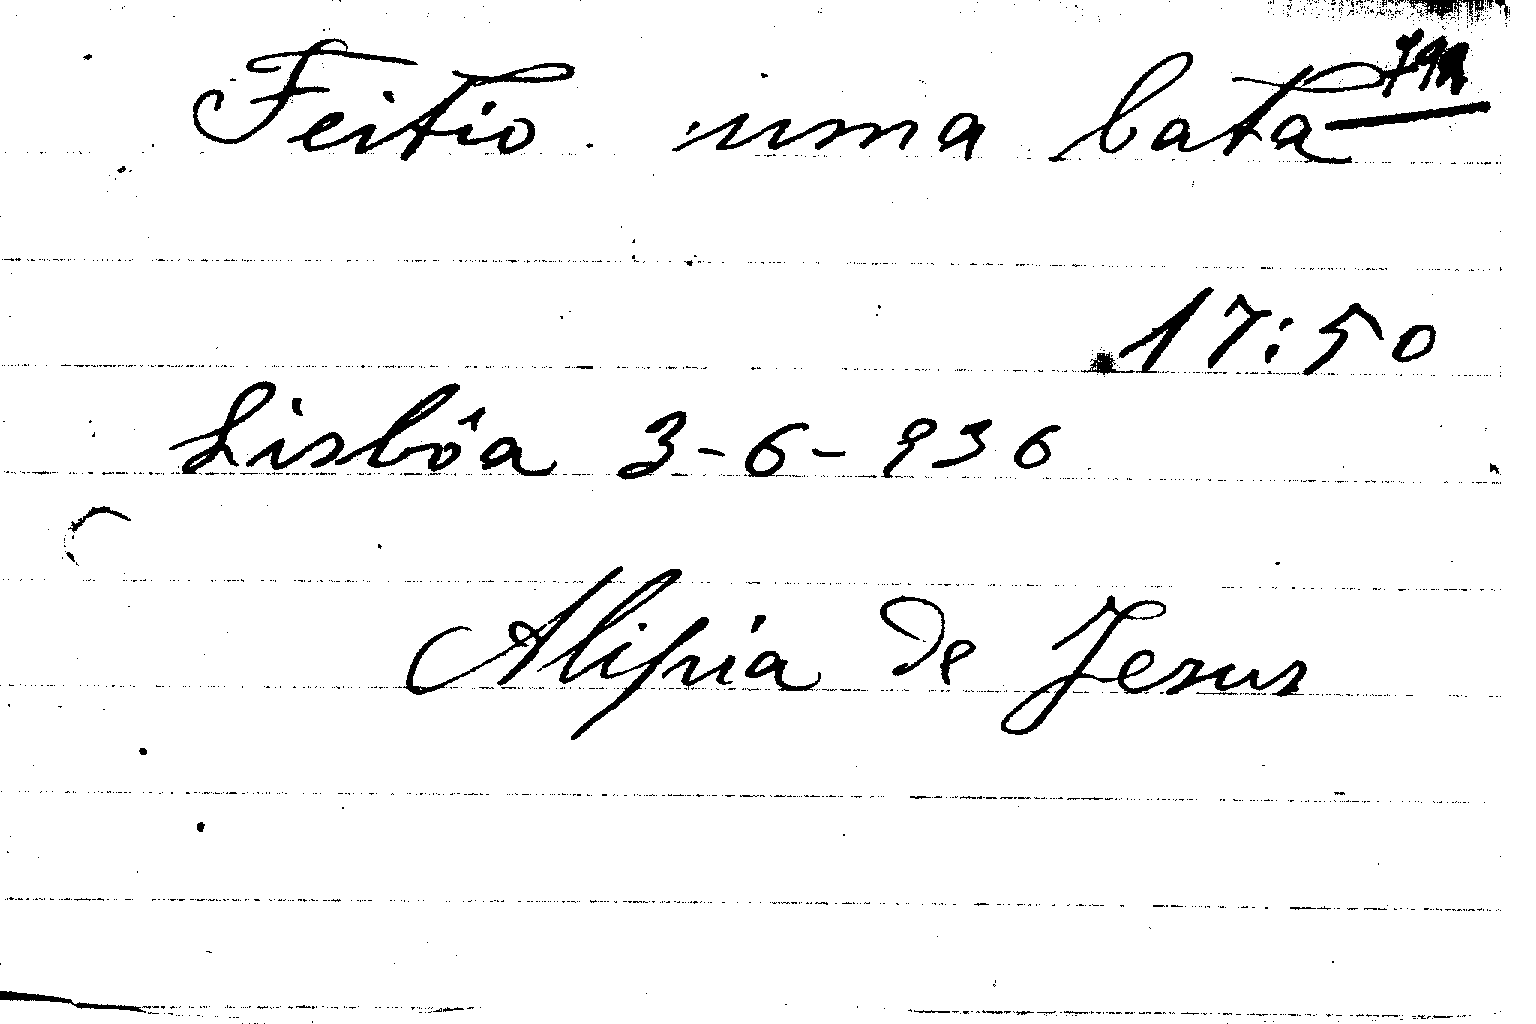 Feitio uma bata
17:50
Lisbôa 3-6-936
Alipia de Jesus